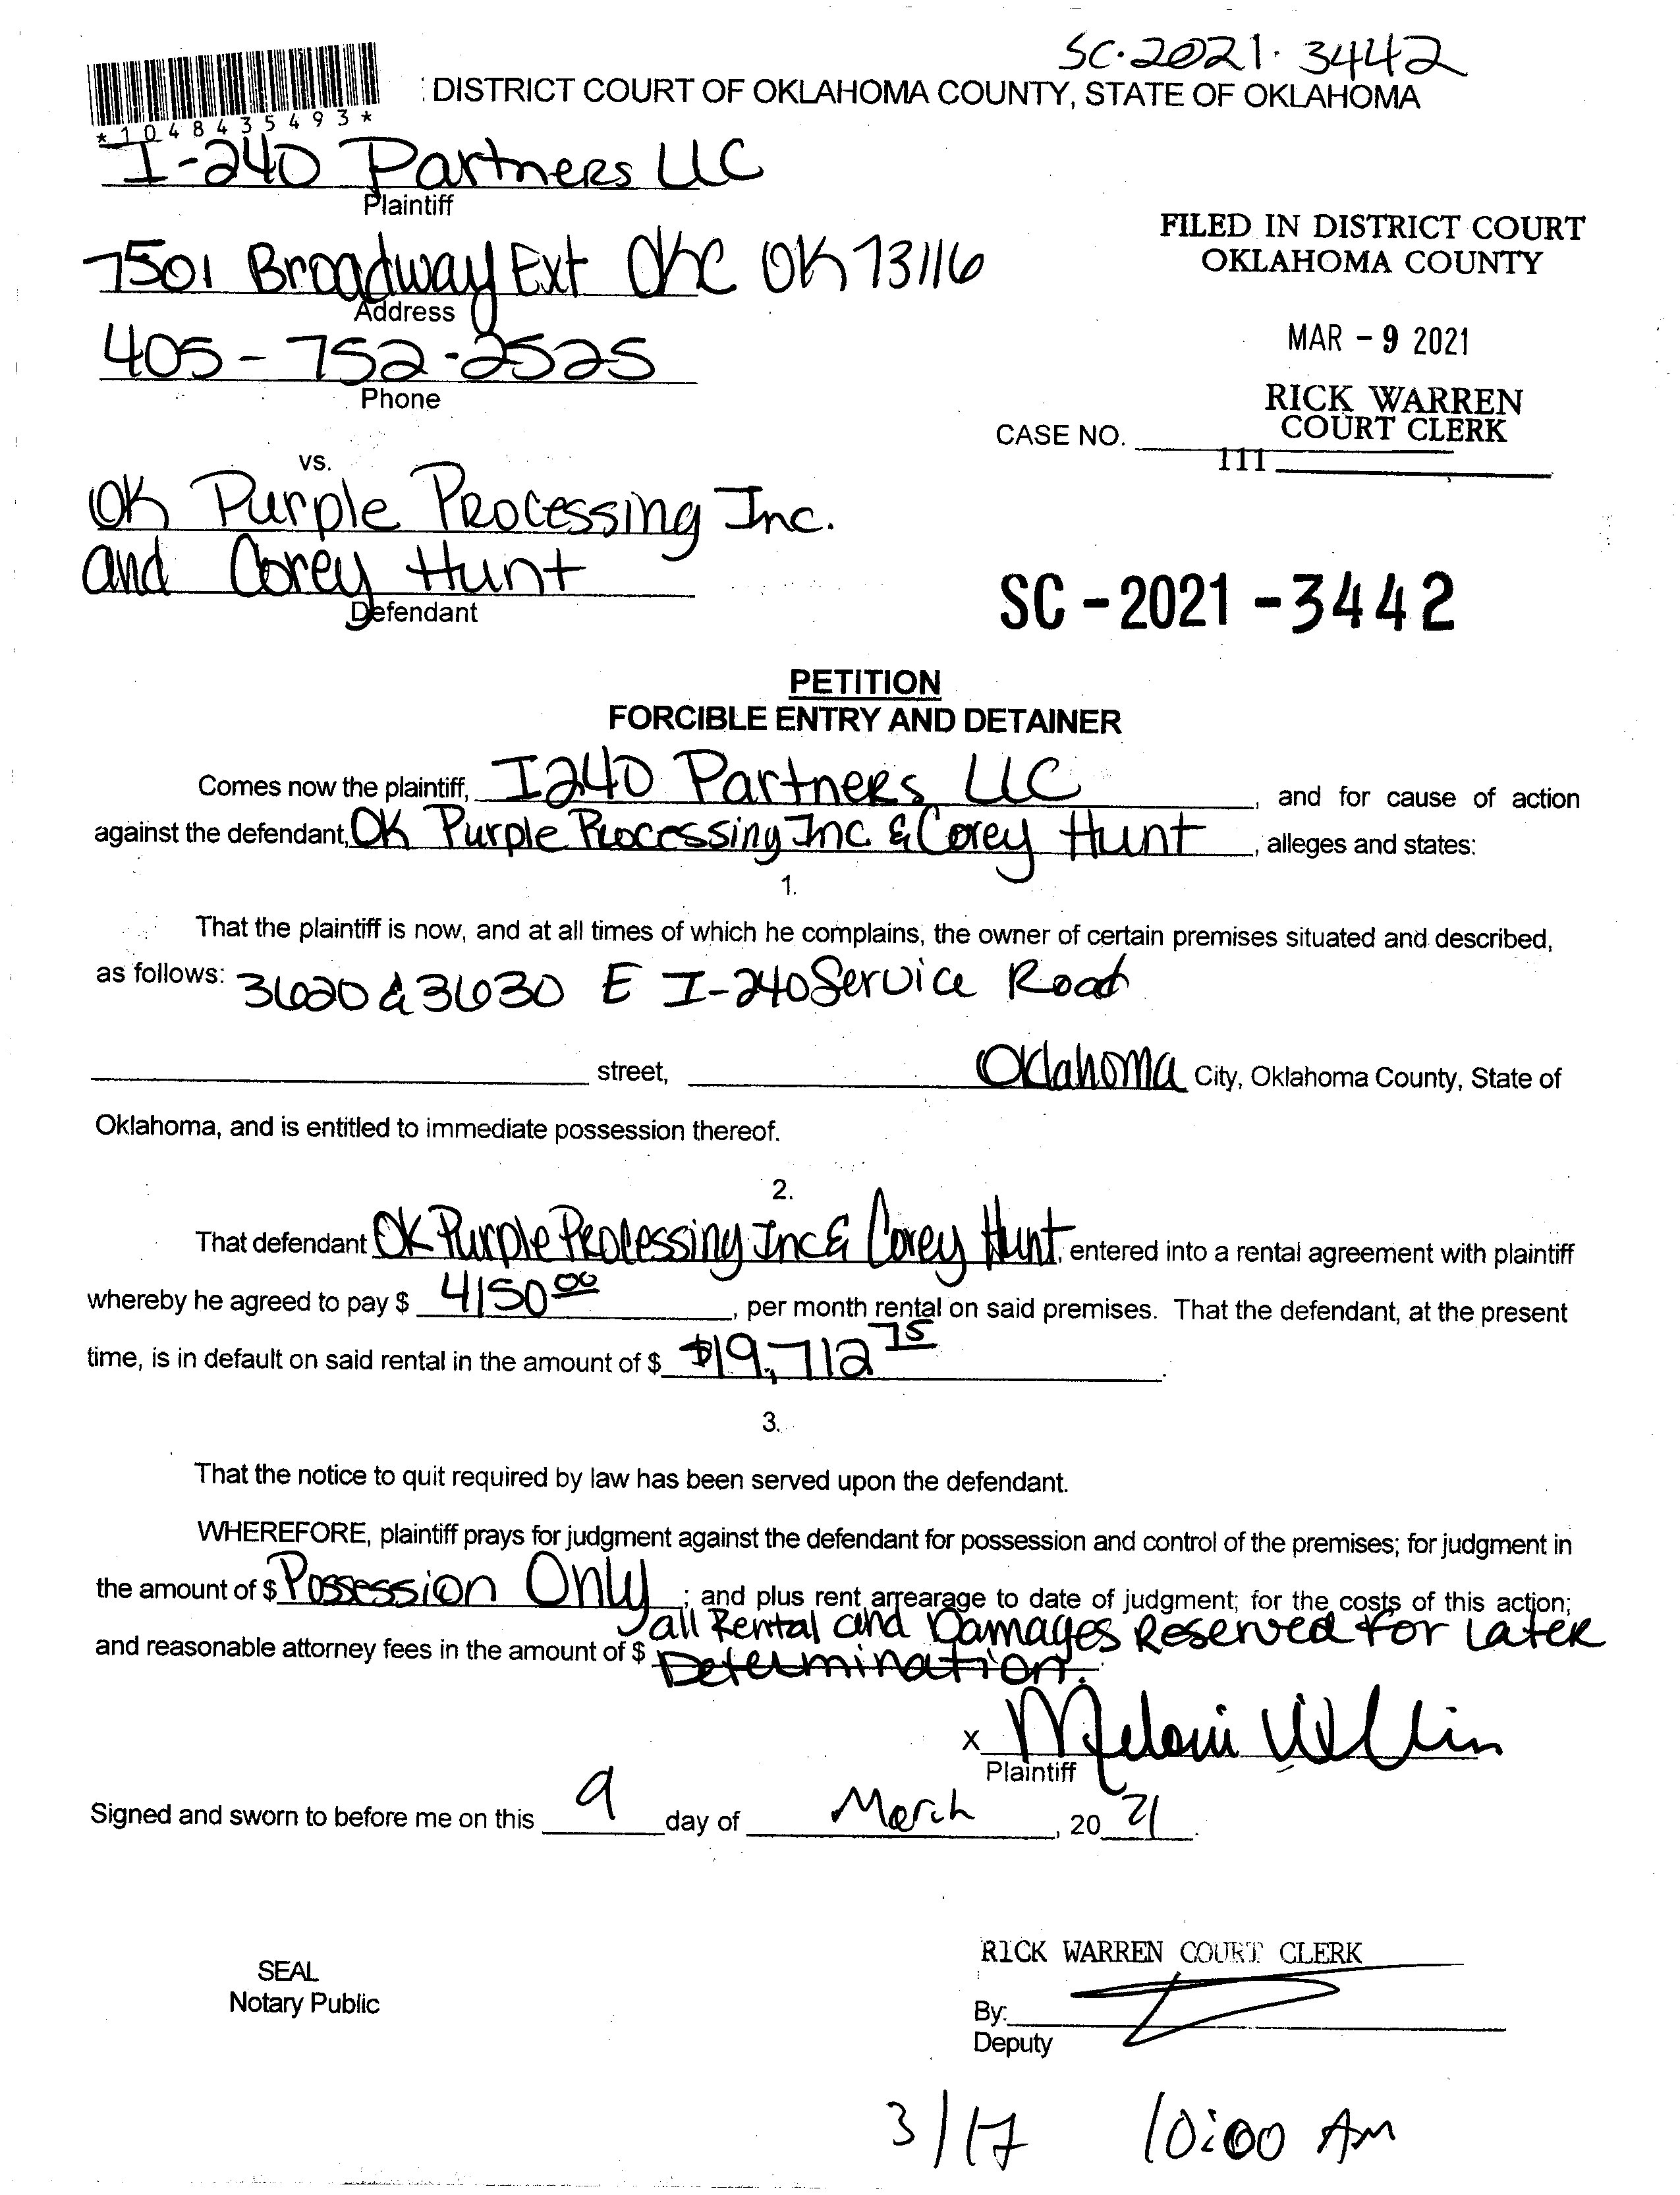 SC-2021-3442
: DISTRICT COURT OF OKLAHOMA COUNTY, STATE OF OKLAHOMA
*1048435493*
I-240 Partners LLC
Plaintiff
7501 Broadway Ext OKC OK 73116
Address
405-752-2525
Phone
FILED IN DISTRICT COURT
OKLAHOMA COUNTY
MAR - 9 2021
RICK WARREN
COURT CLERK
CASE NO.
111
vs.
OK Purple Processing Inc.
and Corey Hunt
Defendant
SC - 2021 - 3442
PETITION
FORCIBLE ENTRY AND DETAINER
Comes now the plaintiff, I240 Partners LLC, and for cause of action
against the defendant, OK Purple Processing Inc & Corey Hunt, alleges and states:
1.
That the plaintiff is now, and at all times of which he complains, the owner of certain premises situated and described,
as follows: 3620 & 3630 E I-240 Service Road
street, Oklahoma City, Oklahoma County, State of
Oklahoma, and is entitled to immediate possession thereof.
2.
That defendant OK Purple Processing Inc & Corey Hunt, entered into a rental agreement with plaintiff
whereby he agreed to pay $ 4150 00, per month rental on said premises. That the defendant, at the present
time, is in default on said rental in the amount of $ $19,712 75.
3.
That the notice to quit required by law has been served upon the defendant.
WHEREFORE, plaintiff prays for judgment against the defendant for possession and control of the premises; for judgment in
the amount of $ Possession Only; and plus rent arrearage to date of judgment; for the costs of this action;
and reasonable attorney fees in the amount of $ all Rental and Damages Reserved for Later
Determination.
x
Plaintiff
Signed and sworn to before me on this 9 day of March, 20 21.
SEAL
Notary Public
RICK WARREN COURT CLERK
By:
Deputy
3/17 10:00 AM